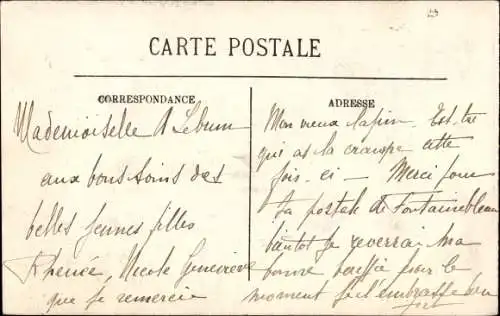 CARTE POSTALE
CORRESPONDANCE
Mademoiselle A Lebrun
aux bons soins des
belles jeunes filles
Nicole Geneviève
que je remercie
ADRESSE
Mon vieux lapin. Est-ce
qui as la crampe cette
fois-ci — Merci pour
ta postale de Fontainebleau
bientôt je reverrai ma
bonne pour le
moment je l'embrasse bien
fort